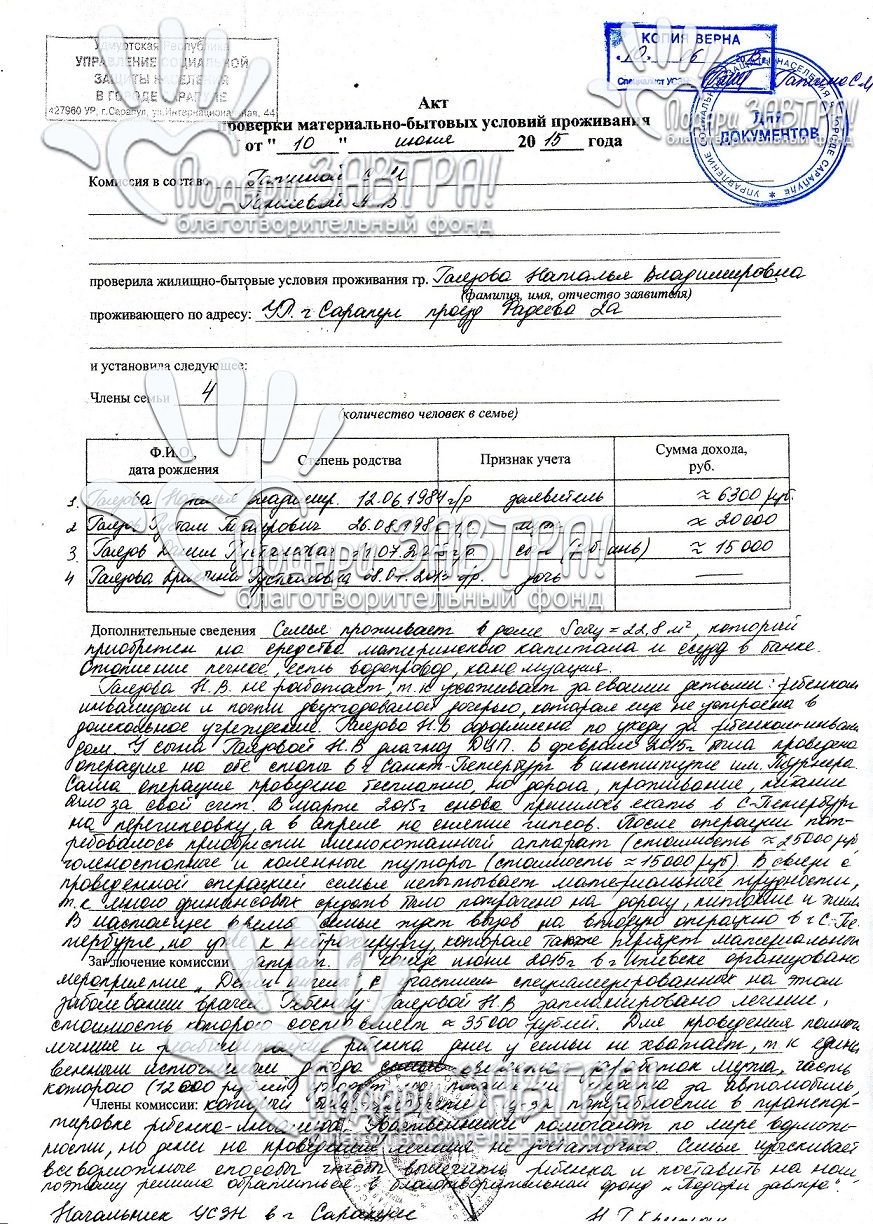 Удмуртская Республика
УПРАВЛЕНИЕ СОЦИАЛЬНОЙ
ЗАЩИТЫ НАСЕЛЕНИЯ
В ГОРОДЕ САРАПУЛЕ
427960 УР, г.Сарапул, ул.Интернациональная, 44
КОПИЯ ВЕРНА
Специалист
ДЛЯ
ДОКУМЕНТОВ
Акт
проверки материально-бытовых условий проживания
от " 10 " июня 20 15 года
Комиссия в составе
проверила жилищно-бытовые условия проживания гр. Галязова Наталья Владимировна
(фамилия, имя, отчество заявителя)
проживающего по адресу: УР. г Сарапул проезд Фадеева 2а
и установила следующее:
Члены семьи 4
(количество человек в семье)
Ф.И.О., дата рождения Степень родства Признак учета Сумма дохода, руб.
1. Галязова Наталья Владимир. 12.06.1984 г/р заявитель ≈ 6300 руб.
2 Галязов Рустам 26.08.198 г/р муж ≈ 20000
3 Галязов Данил Рустамович г/р сын (реб. инв) ≈ 15000
4 Галязова Кристина Рустамовна г/р. дочь —
Дополнительные сведения Семья проживает в доме Sобщ = 22,8 м², который
приобретен на средства материнского капитала и ссуду в банке.
Отопление печное, есть водопровод, канализация.
Галязова Н.В. не работает, т.к ухаживает за своими детьми: ребенком
инвалидом и почти двухгодовалой дочерью, которая еще не устроена в
дошкольное учреждение. Галязова Н.В оформлена по уходу за ребенком-инвали
дом. У сына Галязовой Н.В диагноз ДЦП. В феврале 2015г была проведена
операция на обе стопы в г Санкт-Петербург в институте им. Турнера.
Сама операция проведена бесплатно, но дорога, проживание, питание
было за свой счет. В марте 2015г снова пришлось ехать в С-Петербург
на перегипсовку, а в апреле на снятие гипсов. После операции пот-
ребовалось приобрести аппарат (стоимость ≈ 25000 руб
голеностопные и коленные туторы (стоимость ≈ 15000 руб) В связи с
проведенной операцией семья испытывает материальные трудности,
т.к много финансовых средств было потрачено на дорогу, питание и
В настоящее время семья ждет вызов на вторую операцию в г С-Пе-
тербурге, но уже к нейрохирургу, которая также требует материальных
Заключение комиссии затрат. В конце июня 2015г в г Ижевске организовано
мероприятие „Дети ангела", с участием специализированных на этом
заболевании врачей. Ребенку Галязовой Н.В запланировано лечение,
стоимость которого составляет ≈ 35000 рублей. Для проведения полного
лечения и реабилитации ребенка денег у семьи не хватает, т.к един-
венным источником дохода является заработок мужа, часть
которого (12000 рублей) за автомобиль,
Члены комиссии: который для потребности в транспор-
тировке ребенка-инвалида. Родственники помогают по мере возмож-
ности, но денег на проведение лечения не достаточно. Семья изыскивает
всевозможные способы чтобы вылечить ребенка и поставить на ноги
поэтому решила обратиться в благотворительный фонд „Подари завтра".
Начальник УСЗН в г Сарапуле
Подари ЗАВТРА!
благотворительный фонд
Подари ЗАВТРА!
благотворительный фонд
Подари ЗАВТРА!
благотворительный фонд
Подари ЗАВТРА!
благотворительный фонд